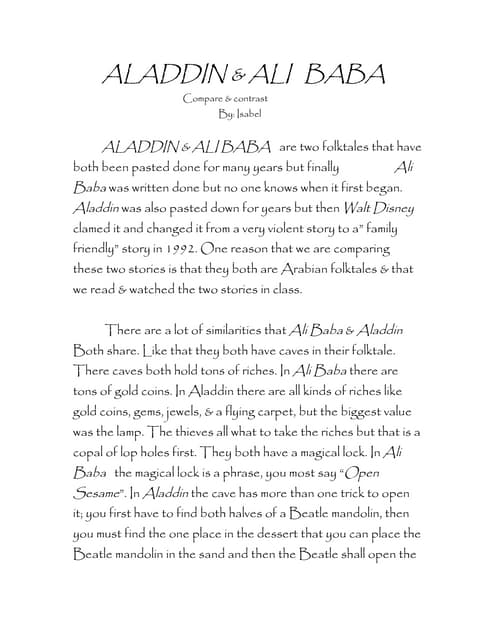 ALADDIN & ALI BABA
Compare & contrast
By: Isabel
ALADDIN & ALI BABA are two folktales that have
both been pasted done for many years but finally Ali
Baba was written done but no one knows when it first began.
Aladdin was also pasted down for years but then Walt Disney
clamed it and changed it from a very violent story to a" family
friendly" story in 1992. One reason that we are comparing
these two stories is that they both are Arabian folktales & that
we read & watched the two stories in class.
There are a lot of similarities that Ali Baba & Aladdin
Both share. Like that they both have caves in their folktale.
There caves both hold tons of riches. In Ali Baba there are
tons of gold coins. In Aladdin there are all kinds of riches like
gold coins, gems, jewels, & a flying carpet, but the biggest value
was the lamp. The thieves all what to take the riches but that is a
copal of lop holes first. They both have a magical lock. In Ali
Baba the magical lock is a phrase, you most say "Open
Sesame". In Aladdin the cave has more than one trick to open
it; you first have to find both halves of a Beatle mandolin, then
you must find the one place in the dessert that you can place the
Beatle mandolin in the sand and then the Beatle shall open the